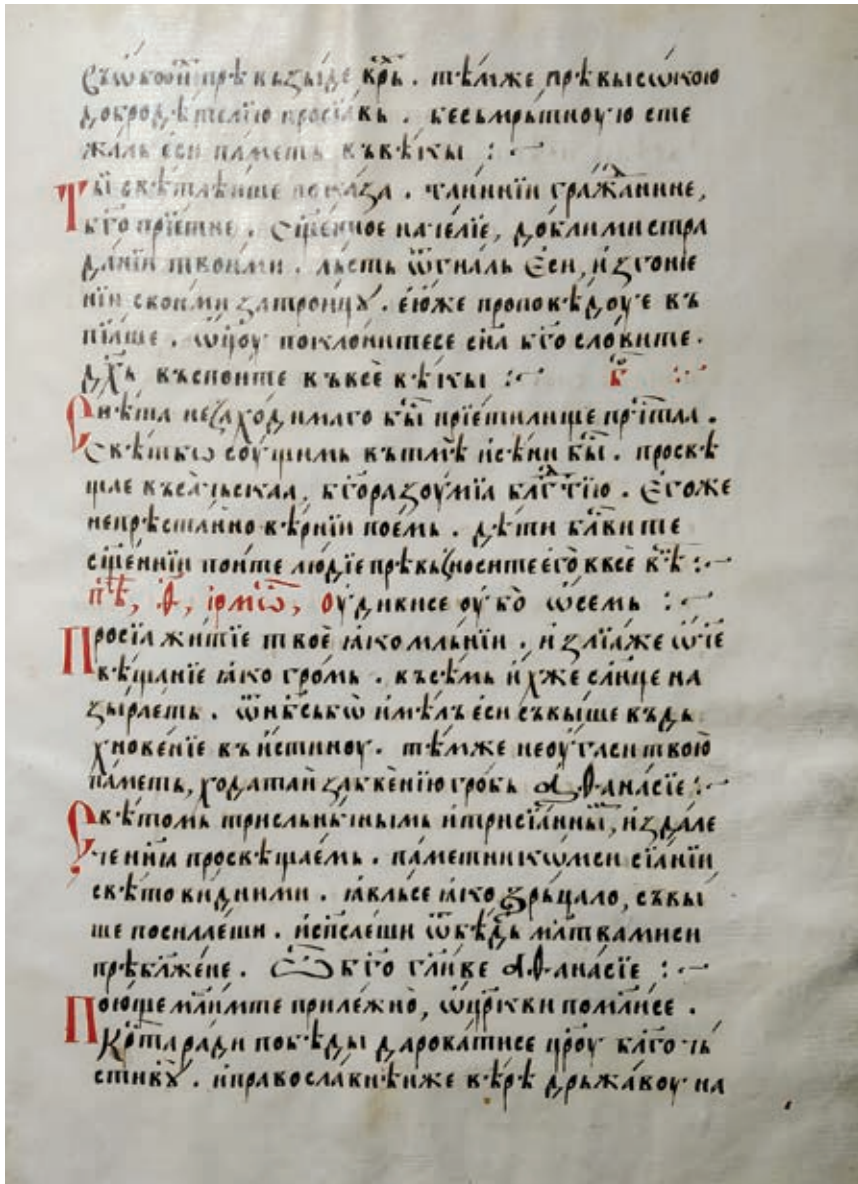 превьзыде . тѣмже прѣвысѡкою
добродѣтелїю просїавь . бесьмрьтноую сте
жаль еси паметь въвѣкы :
Ты свѣтлѣише показа . гражданине,
бг҃о прїетне . сщ҃енное начелїе, доблими стра
данїи твоими . льсть ѿгналь Єси, изгонїе
нїи своими затроицꙋ . еюже проповѣдоуе вь
пїаше . ѡц҃оу поклонитесе сн҃а бг҃ословите .
дх҃ь вьспоите вьвсе вѣкы : б҃ :
Свѣта незаходимаго бы прїетилище прст҃ла .
Свѣтьѡ соущимь вьтмѣ исѣни бы . просвѣ
щае вьсачьскаа, бг҃оразоумїа блг҃тїю . Єгоже
непрѣстанно вѣрнїи поемь . дѣти блв҃ите
сщ҃еннїи поите людїе прѣвьзносите его ввсе вѣ :
пѣ, ѳ҃, їрмѡ, оудивисе оубо ѡсемь :
Просїа житїе твое ꙗкомльнїи . излїаже ѡч҃е
вѣщанїе ꙗко громь . вьсѣмь ихже слнце на
зыраеть . ѿнбс҃ьѡ имѣль еси сьвыше вьдь
хновенїе вьистиноу . тѣмже неоугаси твою
паметь, ходатаи гробь Аѳанасїе :
Свѣтомь трисльньчнымь итрисїаннымь, издале
че ннїа просвѣщаемь . паметникѡмси сїанїи
свѣтовидними . ꙗвльсе ꙗко зрьцало, сьвы
ше посилаеши . исп҃слеши ѿбѣдь мл҃твамиси
прѣблж҃ене . Ѿ бг҃о гл҃иве Аѳанасїе :
Поюще мл҃имте прилежно, ѡцр҃кви помлисе .
Крс҃та ради побѣды дароватисе цр҃оу благочь
стивꙋ . иправославнѣиже вѣрѣ дрьжавоу на